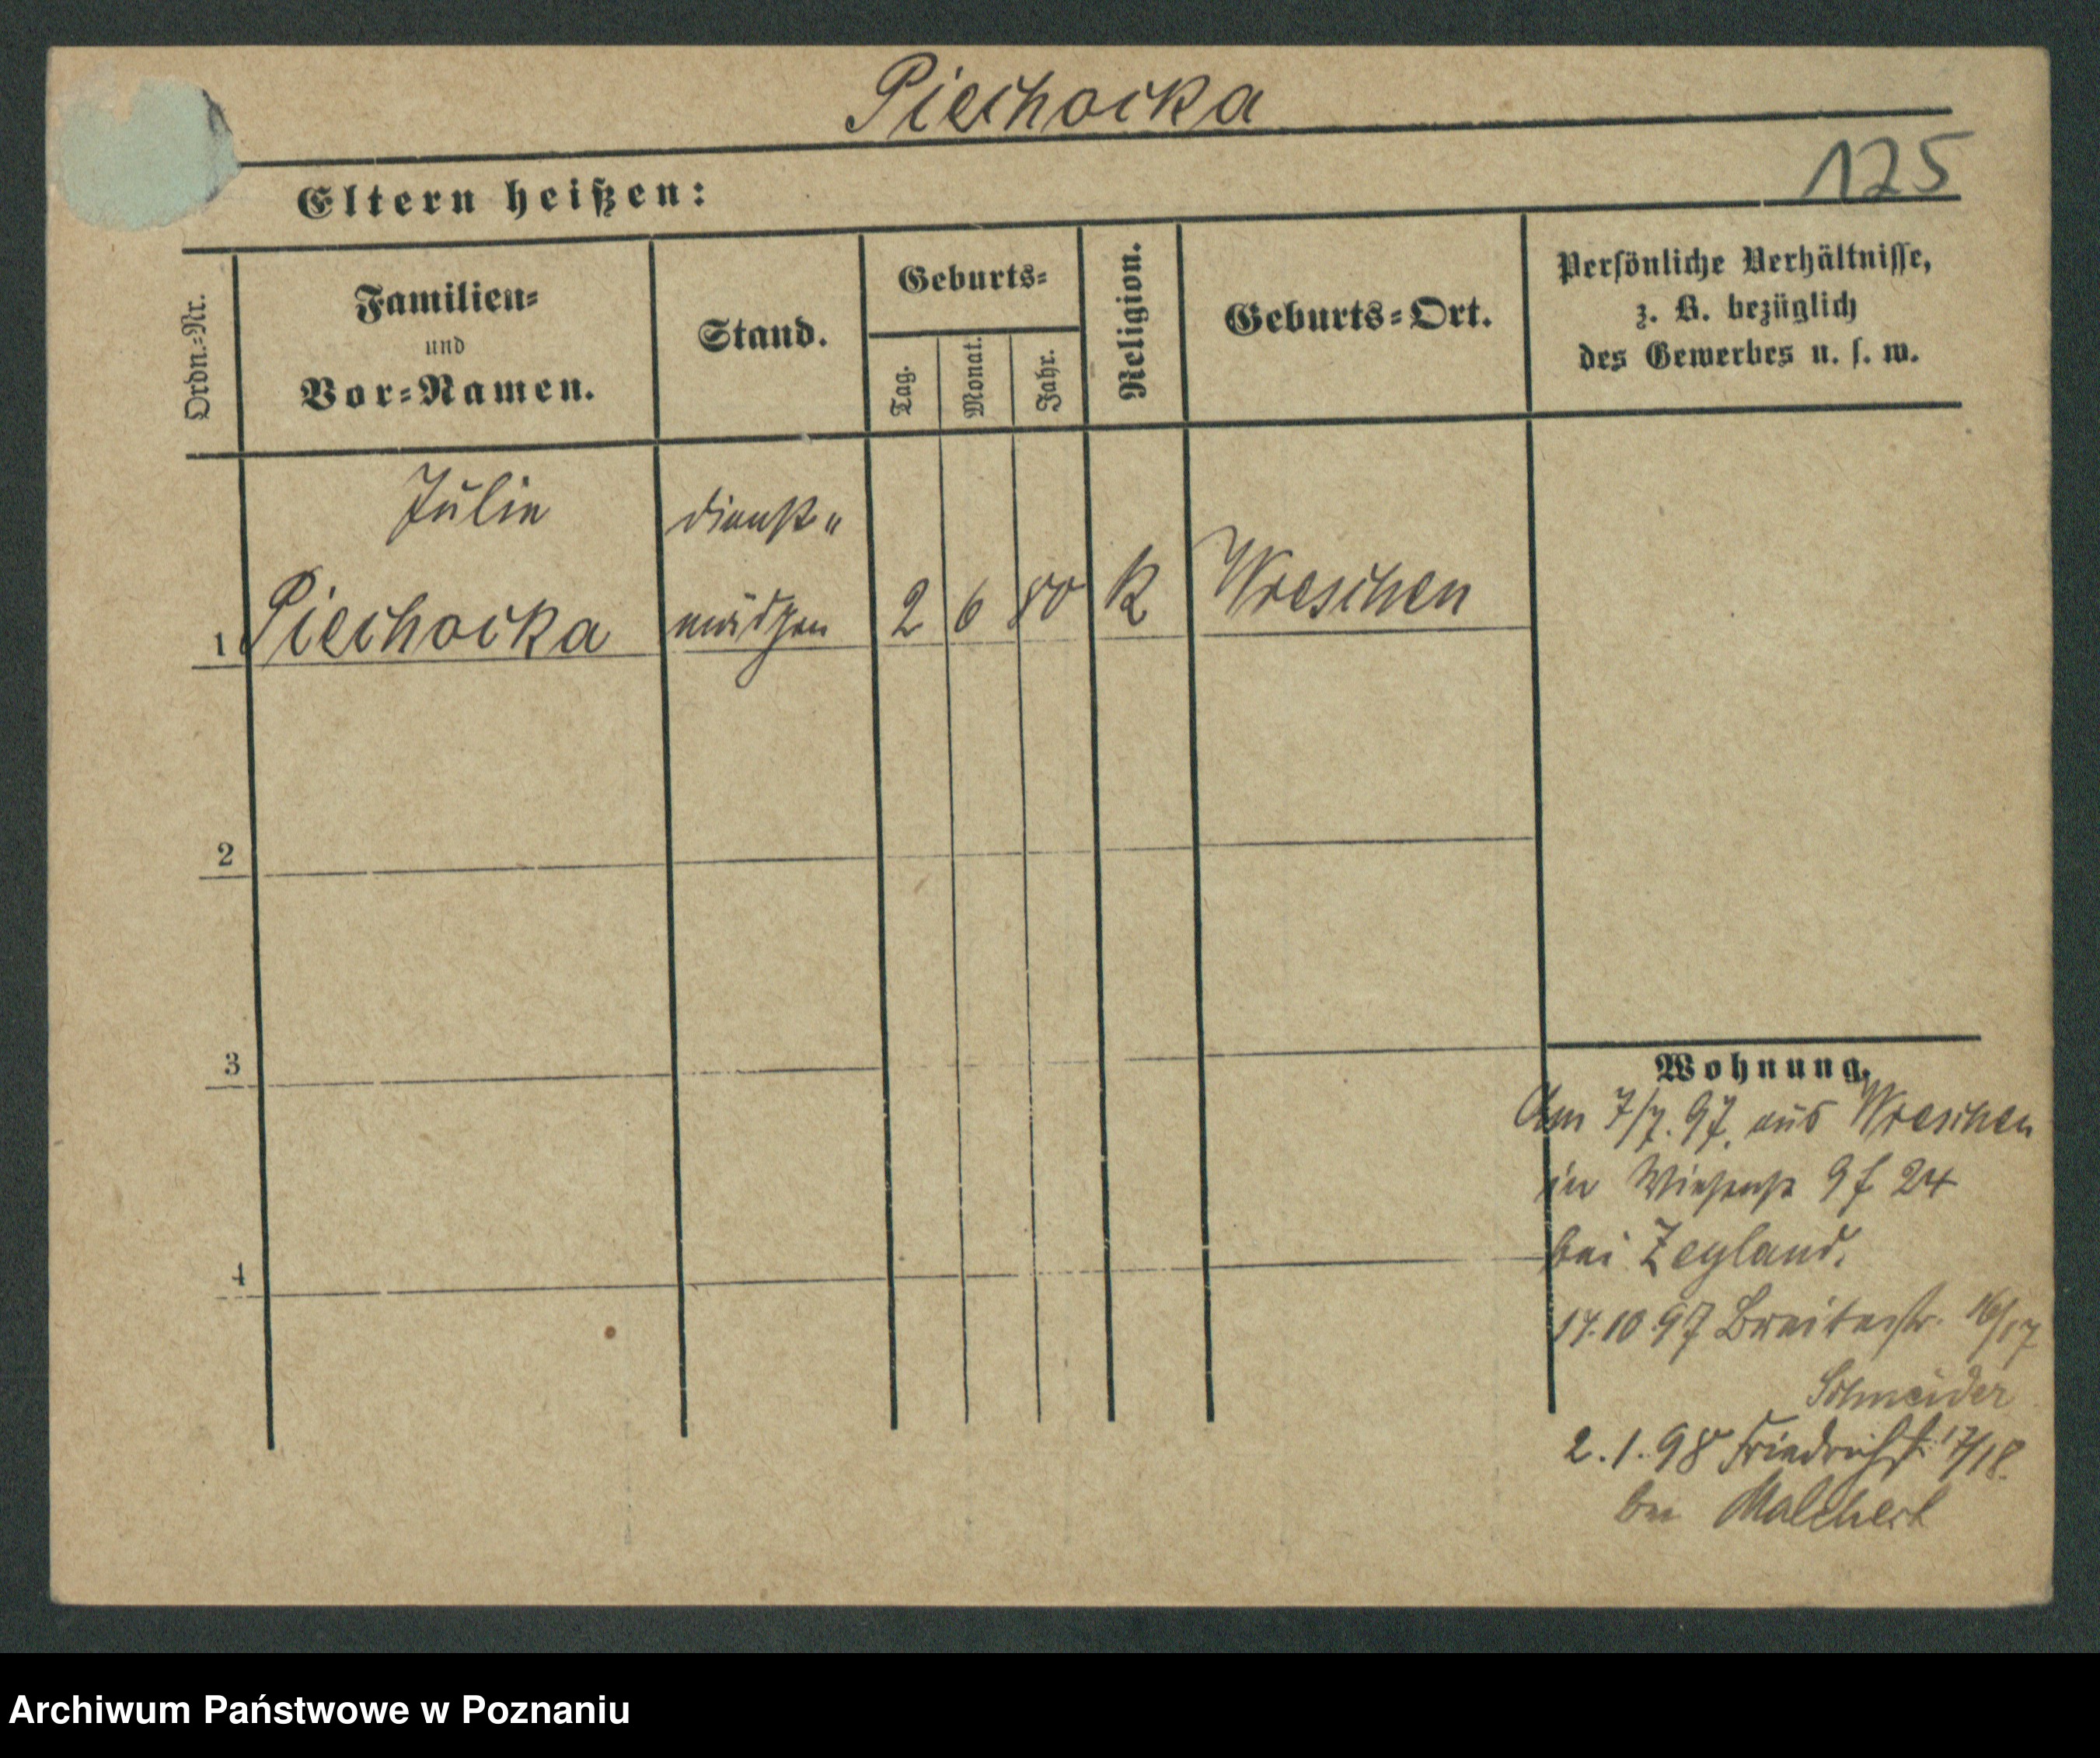 Piechocka
125
Eltern heißen:
Ordn.-Nr.
Familien-
und
Vor-Namen.
Stand.
Geburts-
Tag.
Monat.
Jahr.
Religion.
Geburts-Ort.
Persönliche Verhältnisse,
z. B. bezüglich
des Gewerbes u. s. w.
Julie
Dienst"
1 Piechocka mädchen 2 6 80 K Wreschen
2
3
4
Wohnung.
Am 7/7. 97. aus Wreschen
in Wiesenstr 9 f. 24
bei Zegland.
17.10.97 Breitestr. 16/17
Schneider
2.1.98 Friedrichstr. 17/18.
bei Malchert
Archiwum Państwowe w Poznaniu